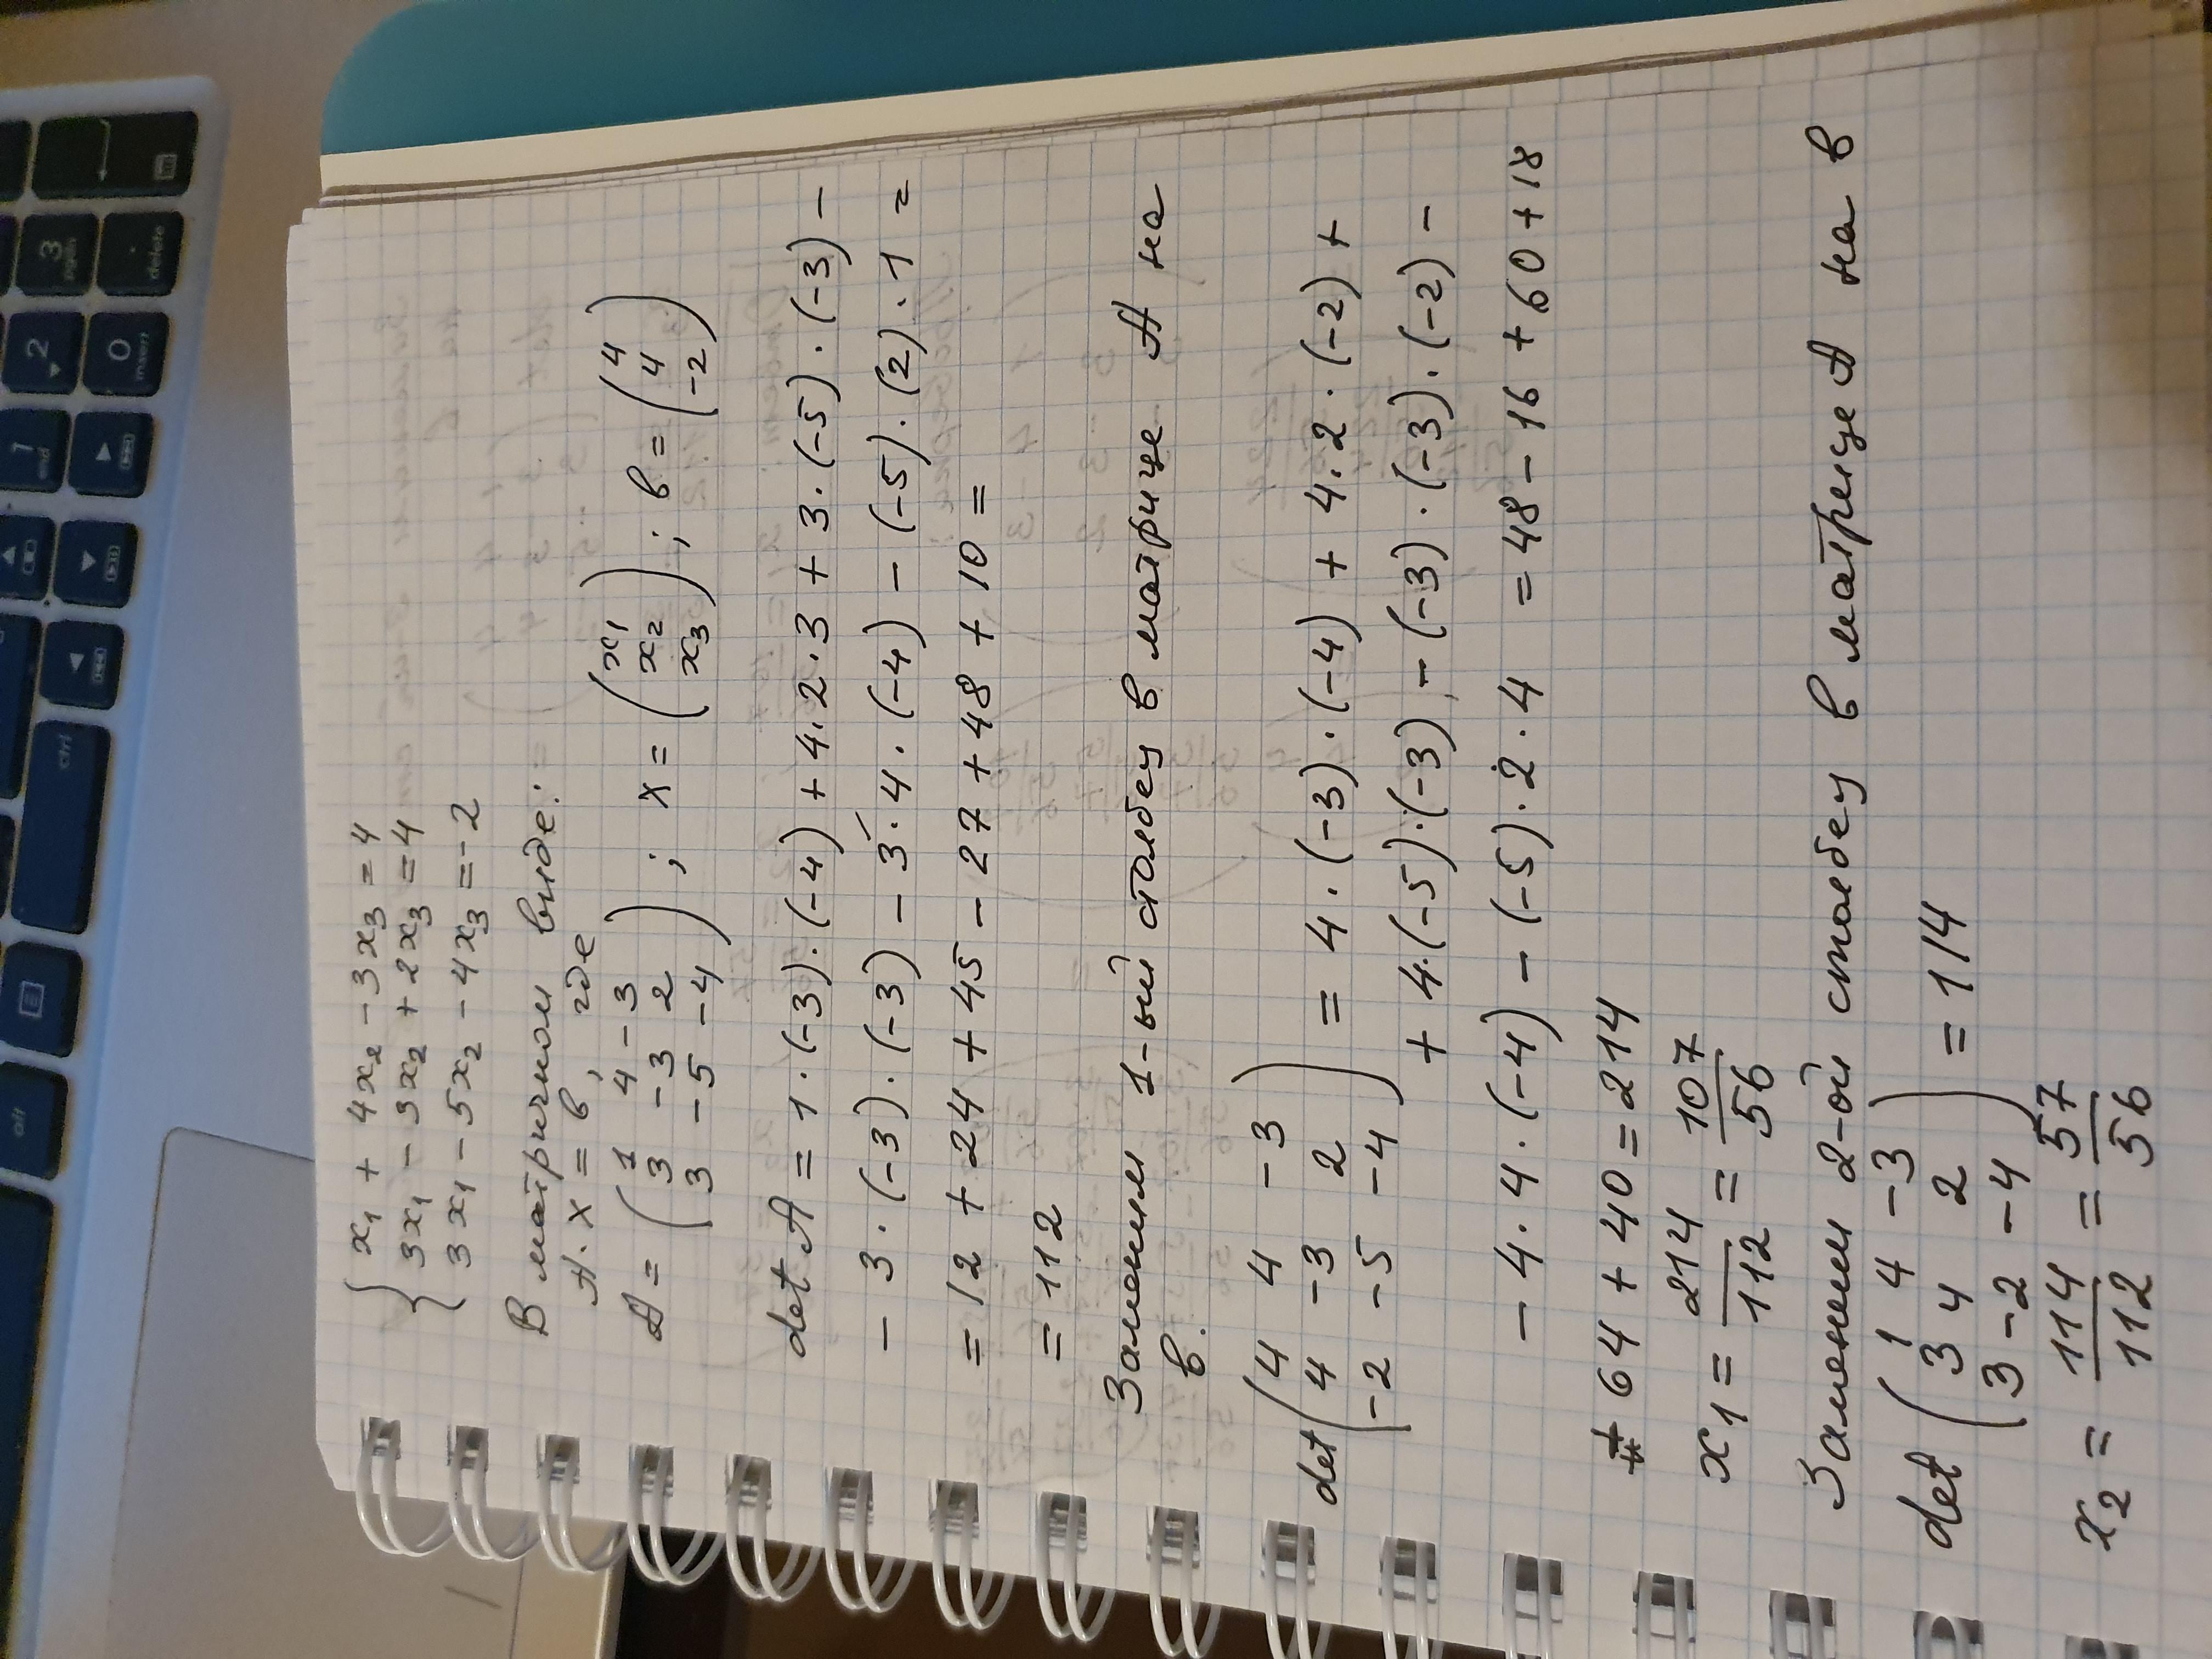 { x₁ + 4x₂ - 3x₃ = 4
3x₁ - 3x₂ + 2x₃ = 4
3x₁ - 5x₂ - 4x₃ = -2
В матричном виде:
A·x = в, где
A = ( 1 4 -3
3 -3 2
3 -5 -4 ) ; x = ( x₁
x₂
x₃ ) ; в = ( 4
4
-2 )
det A = 1·(-3)·(-4) + 4·2·3 + 3·(-5)·(-3) -
- 3·(-3)·(-3) - 3·4·(-4) - (-5)·(2)·1 =
= 12 + 24 + 45 - 27 + 48 + 10 =
= 112
Заменим 1-ый столбец в матрице A на
в.
det ( 4 4 -3
4 -3 2
-2 -5 -4 ) = 4·(-3)·(-4) + 4·2·(-2) +
+ 4·(-5)·(-3) - (-3)·(-3)·(-2) -
- 4·4·(-4) - (-5)·2·4 = 48 - 16 + 60 + 18
+ 64 + 40 = 214
x₁ = 214/112 = 107/56
Заменим 2-ой столбец в матрице A на в
det ( 1 4 -3
3 4 2
3 -2 -4 ) = 114
x₂ = 114/112 = 57/56
alt
ctrl
1 end
2
3 pgdn
0 insert
. delete